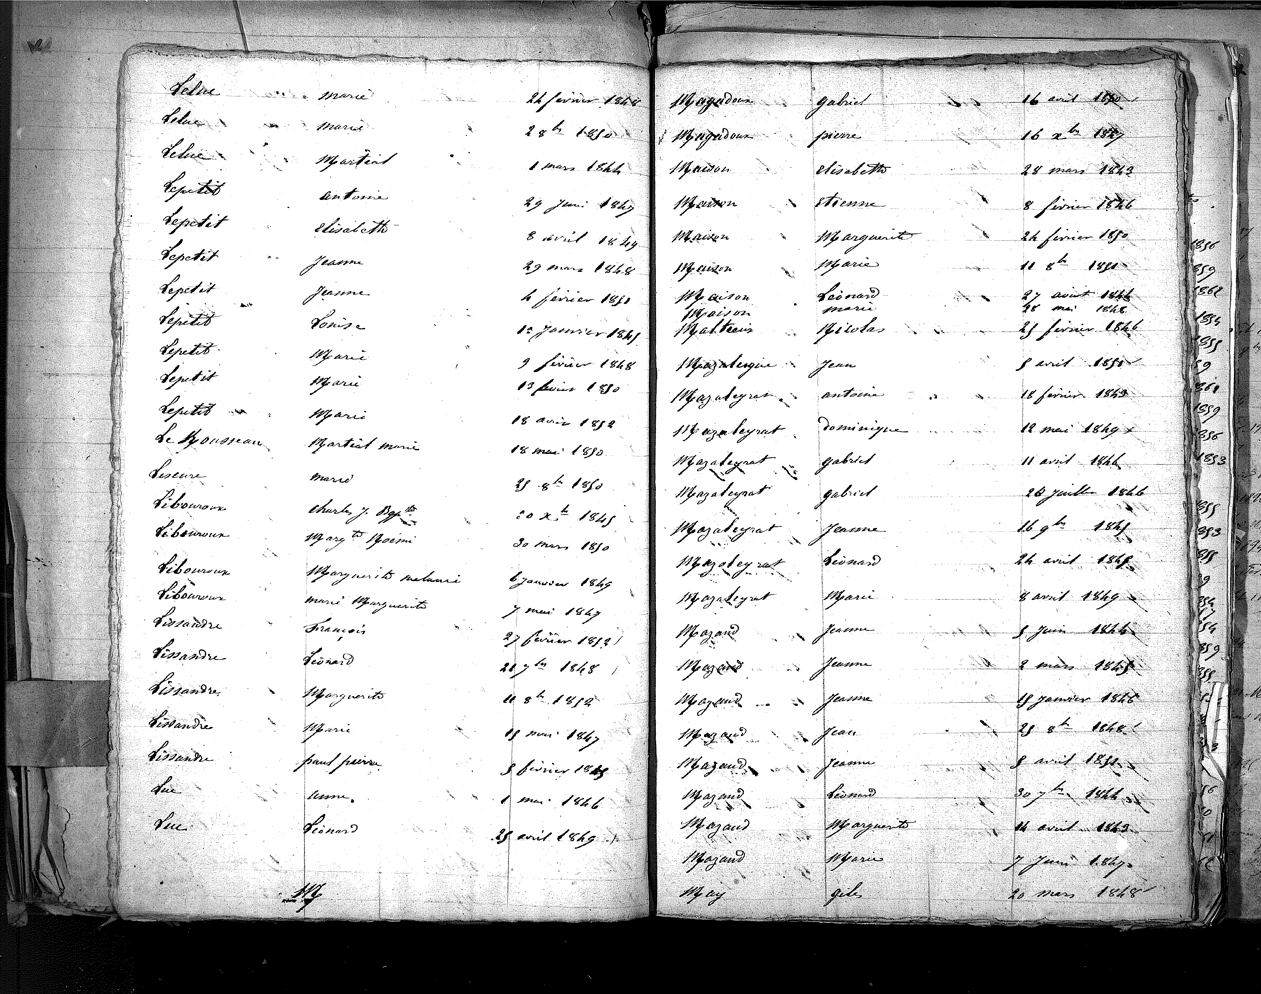 Leluc marie 24 février 1848
Leluc marie 2 8bre 1850
Leluc Martial 1 mars 1844
Lepetit antoine 29 juin 1847
Lepetit élisabeth 8 avril 1849
Lepetit Jeanne 29 mars 1848
Lepetit Jeanne 4 février 1851
Lepetit Louise 12 Janvier 1845
Lepetit Marie 9 février 1848
Lepetit Marie 13 février 1850
Lepetit Marie 18 avril 1852
Le Rousseau Martial marie 18 mai 1850
Leseure marie 25 8bre 1850
Libouroux charles J. Bpte 20 Xbre 1845
Libouroux Margte Noémi 30 mars 1850
Libouroux Marguerite mélanie 6 janvier 1849
Libouroux marie Marguerite 7 mai 1847
Lissandre François 27 février 1852
Lissandre Léonard 21 7bre 1848
Lissandre Marguerite 11 8bre 1852
Lissandre Marie 15 mai 1847
Lissandre paul pierre 5 février 1845
Luc anne 1 mai 1846
Luc Léonard 25 avril 1849
M
Magadoux gabriel 16 avril 1850
Magadoux pierre 16 Xbre 1847
Maison élisabeth 28 mars 1843
Maison étienne 8 février 1846
Maison Marguerite 24 février 1850
Maison Marie 11 8bre 1851
Maison Léonard 27 aout 1844
Maison marie 28 mai 1848
Nicolas 25 février 1846
Jean 5 avril 1851
Mazaleyrat antoine 18 février 1843
Mazaleyrat dominique 12 mai 1849
Mazaleyrat gabriel 11 avril 1844
Mazaleyrat gabriel 26 Juillet 1846
Mazaleyrat Jeanne 16 9bre 1845
Mazaleyrat Léonard 24 avril 1848
Mazaleyrat Marie 8 avril 1849
Mazaud Jeanne 5 Juin 1844
Mazaud Jeanne 2 mars 1845
Mazaud Jeanne 15 Janvier 1848
Mazaud Jean 25 8bre 1848
Mazaud Jeanne 5 avril 1851
Mazaud Léonard 30 7bre 1844
Mazaud Marguerite 14 avril 1843
Mazaud Marie 7 Juin 1847
May giles 20 mars 1848